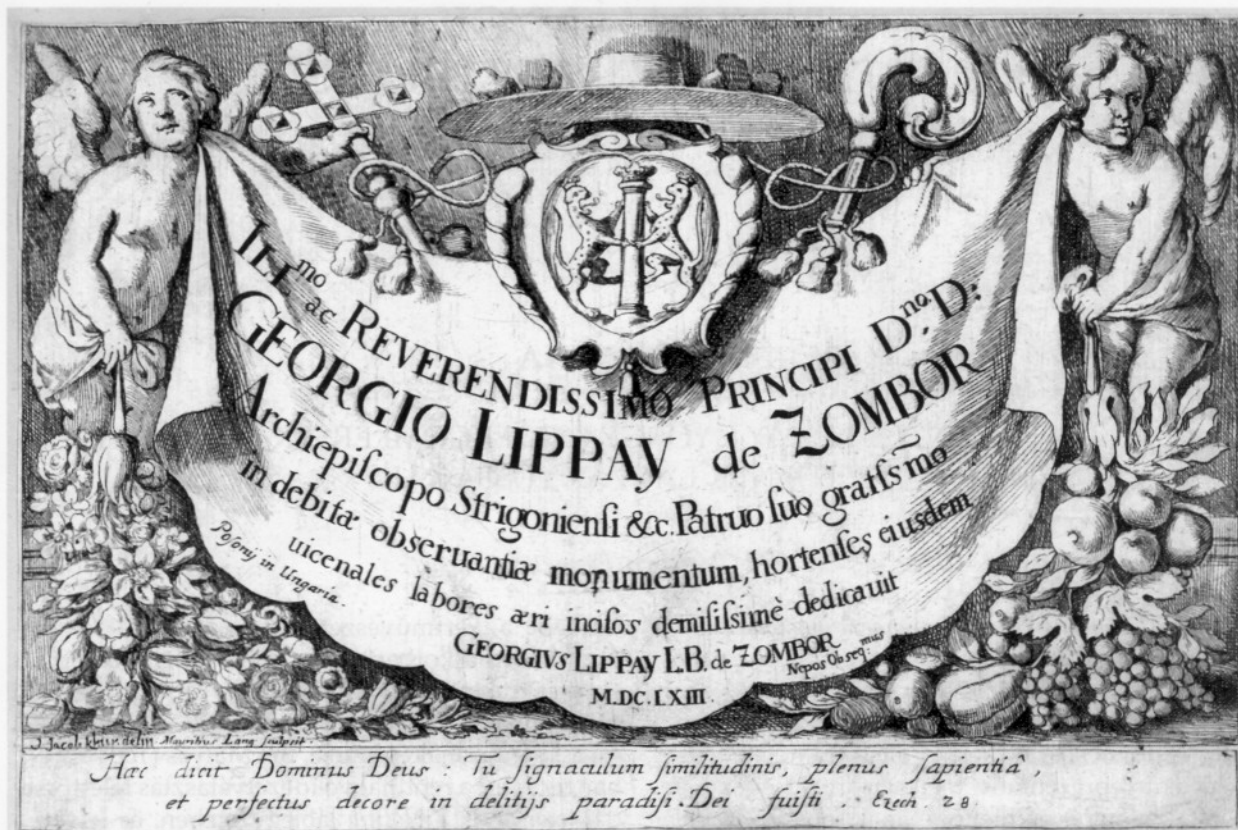 ILL.mo ac REVERENDISSIMO PRINCIPI D.no D:
GEORGIO LIPPAY de ZOMBOR
Archiepiſcopo Strigonienſi &c. Patruo ſuo gratiſsmo
in debitæ obseruantiæ monumentum, hortenſes eiusdem
uicenales labores æri inciſos demiſiſsimè dedicauit
Poſonij in Ungaria.
GEORGIVS LIPPAY L.B. de ZOMBOR
Nepos Obseq:mus
M.DC.LXIII.
Mauritius Lang ſculpsit.
Hæc dicit Dominus Deus : Tu ſignaculum ſimilitudinis, plenus ſapientiâ,
et perfectus decore in delitijs paradiſi Dei fuiſti. Ezech. 28.